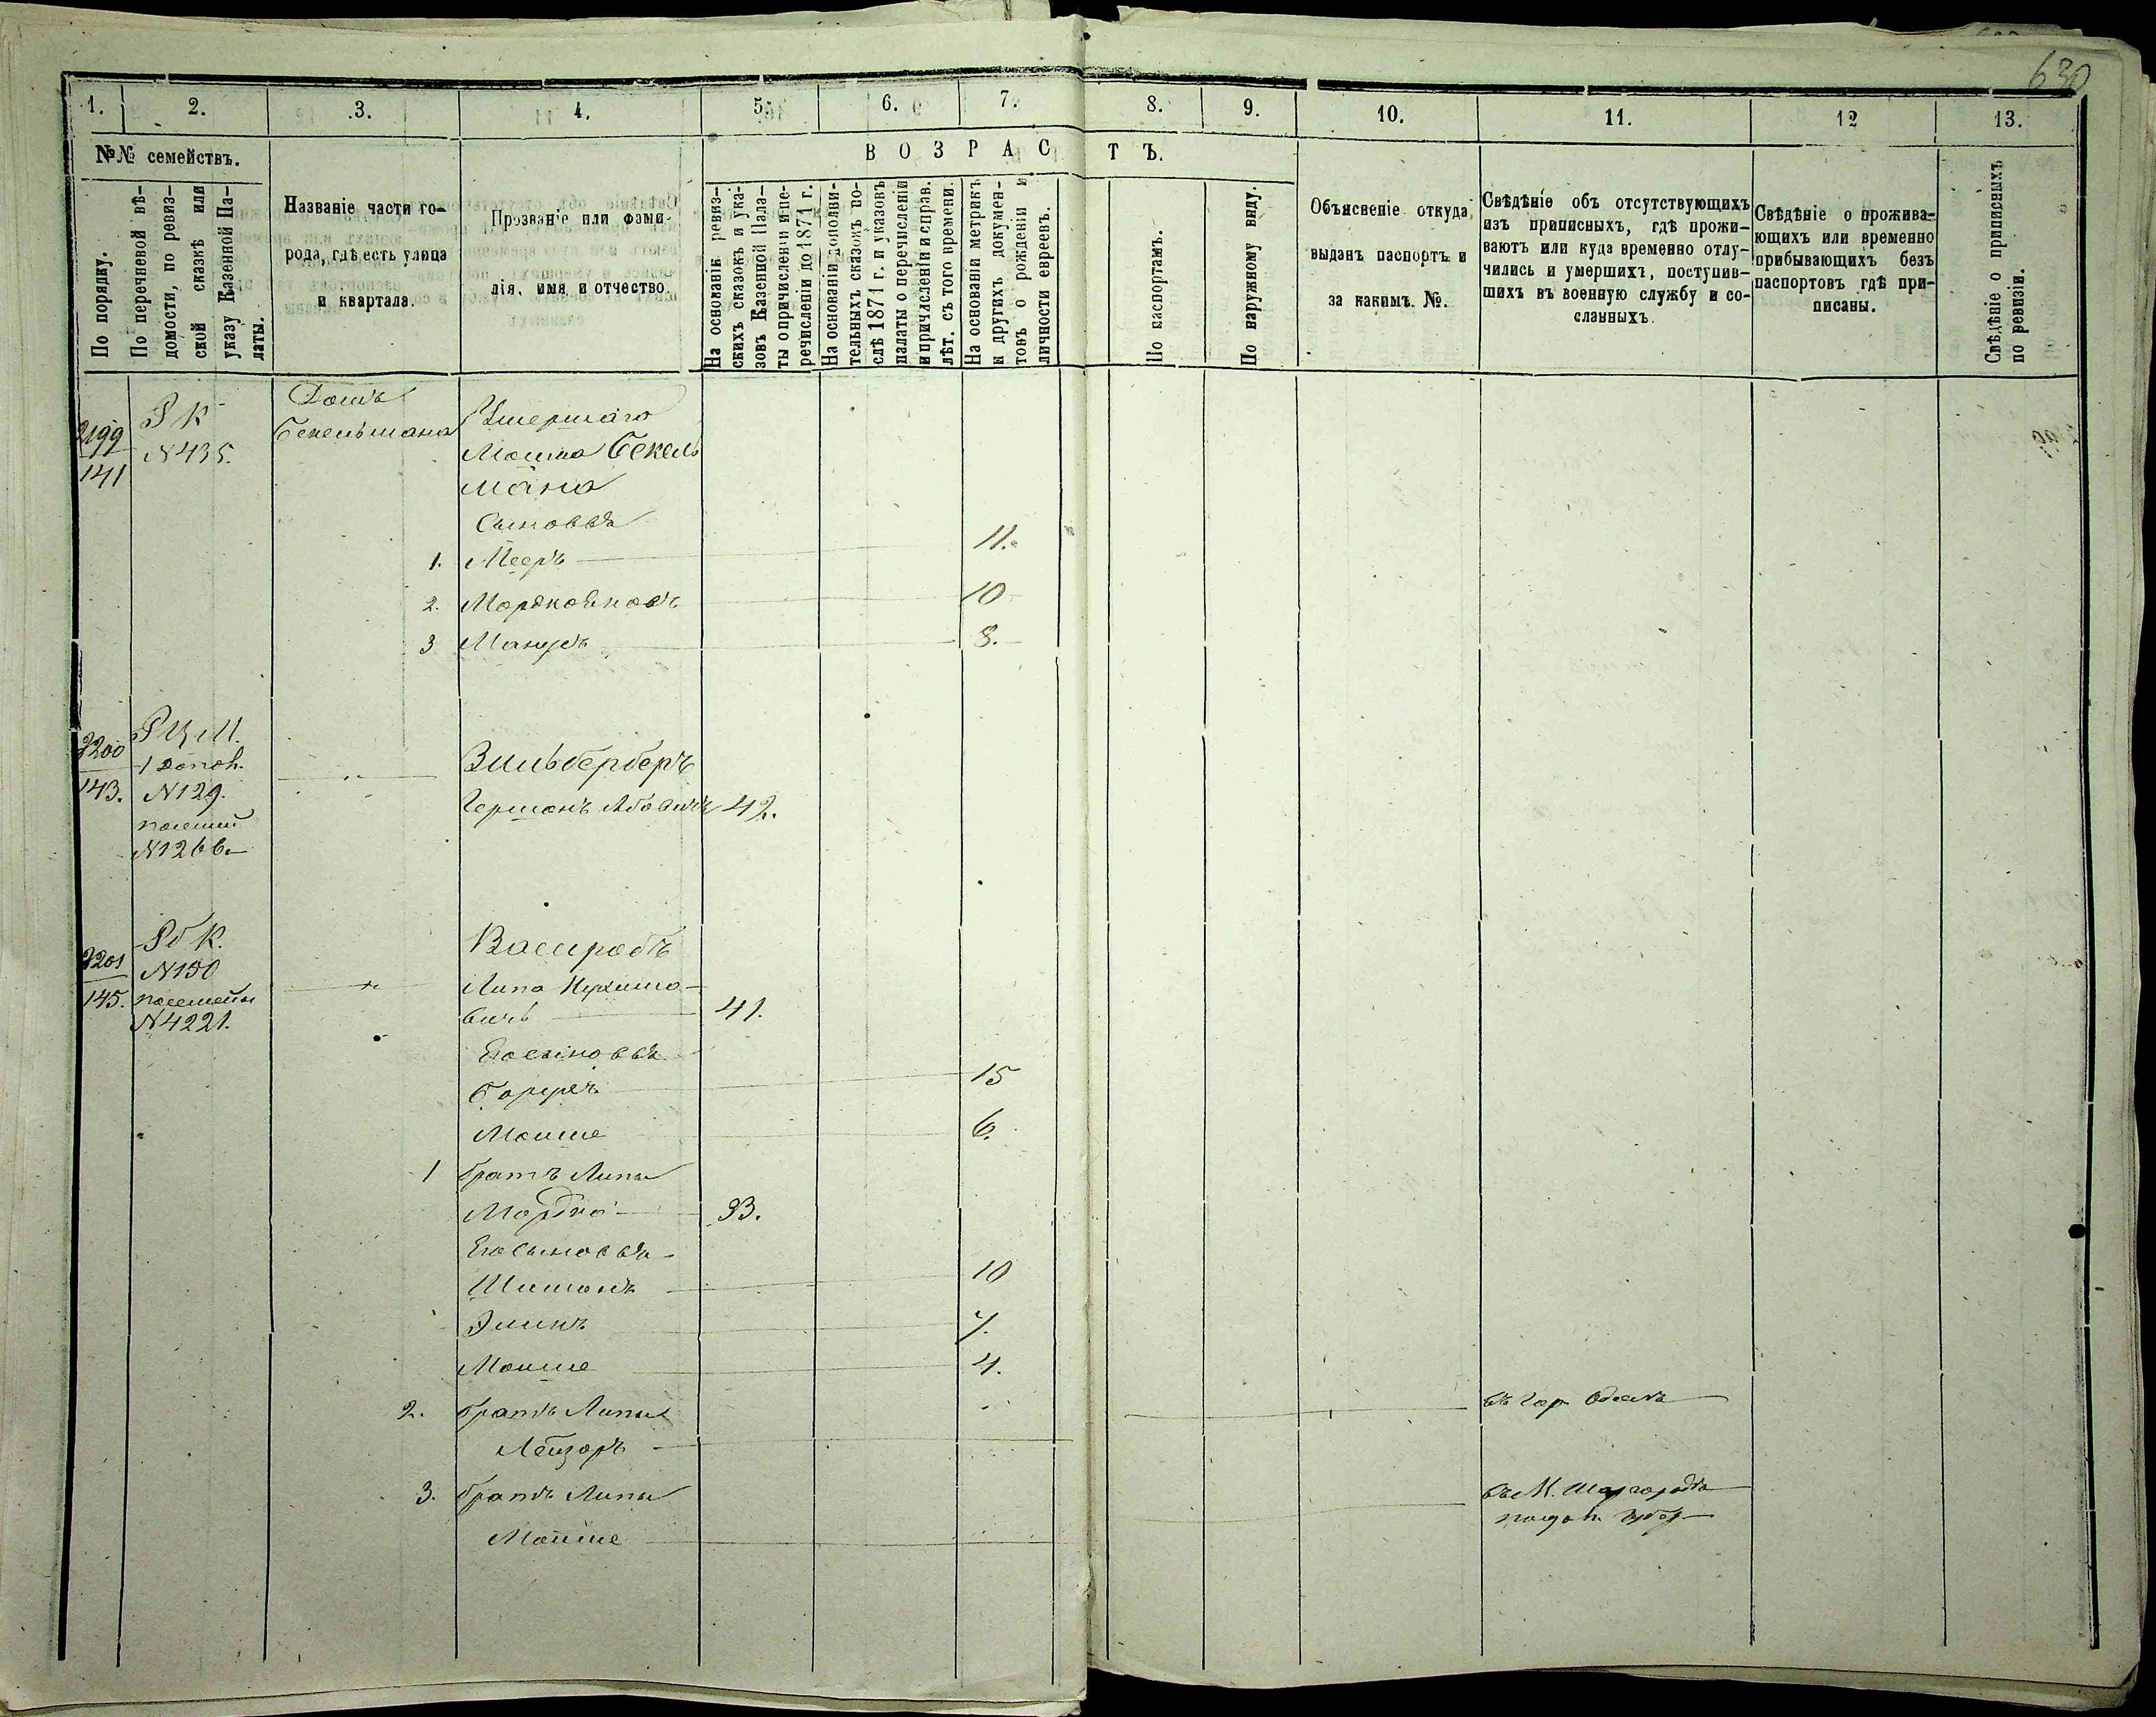 630
1. 2. 3. 4. 5. 6. 7. 8. 9. 10. 11. 12 13.
№№ семействъ.
По порядку.
По перечневой вѣ-
домости, по ревиз-
ской сказкѣ или
указу Казенной Па-
латы.
Названіе части го-
рода, гдѣ есть улица
и квартала.
Прозваніе или фами-
лія, имя и отчество.
ВОЗРАСТЪ.
На основаніи ревиз-
скихъ сказокъ и ука-
зовъ Казенной Пала-
ты о причисленіи и пе-
речисленіи до 1871 г.
На основаніи дополни-
тельныхъ сказокъ по-
слѣ 1871 г. и указовъ
палаты о перечисленіи
и причисленіи и справ.
лѣт. съ того времени.
На основаніи метрикъ
и другихъ докумен-
товъ о рожденіи и
личности евреевъ.
По паспортамъ.
По наружному виду.
Объясненіе откуда
выданъ паспортъ и
за какимъ №.
Свѣдѣніе объ отсутствующихъ
изъ приписныхъ, гдѣ прожи-
ваютъ или куда временно отлу-
чились и умершихъ, поступив-
шихъ въ военную службу и со-
сланныхъ.
Свѣдѣніе о прожива-
ющихъ или временно
прибывающихъ безъ
паспортовъ гдѣ при-
писаны.
Свѣдѣніе о приписныхъ
по ревизіи.
2199
141
Р К
№ 435.
Домъ
Бекельмана
Умершаго
Мошка Бекель
мана
Сыновья
1. Мееръ 11.
2. Мордко 10
3 Манусъ 8.
3200
143.
1 допол.
№ 129.
№ 1266
Зильберберъ
Германъ Абовичъ 42.
3201
145.
Рб К.
№ 150
№ 4221.
Васирабъ
Липа Нухимо-
вичъ 41.
Его сыновья
Борухъ 15
Мошше 6.
1 братъ Липы
Мордко 33.
Его сыновья
Шимонъ 10
7.
Мошше 4.
2. братъ Липы въ гор Одессѣ
Лейзоръ
3. братъ Липы въ М. Шаргородѣ
подол. губер
Мойше